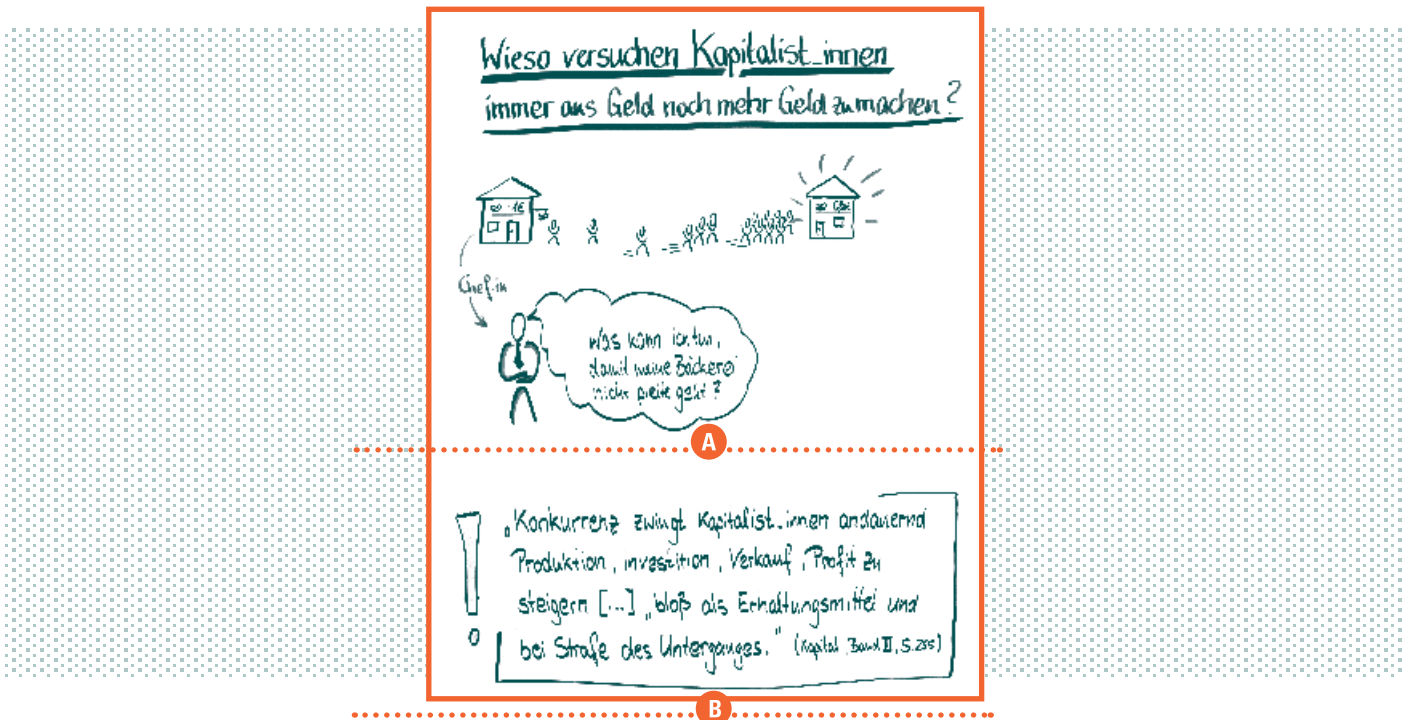 Wieso versuchen Kapitalist_innen
immer aus Geld noch mehr Geld zu machen?
Chef_in
Was kann ich tun,
damit meine Bäckerei
nicht pleite geht?
A
„Konkurrenz zwingt Kapitalist_innen andauernd
Produktion, Investition, Verkauf, Profit zu
steigern [...] „bloß als Erhaltungsmittel und
bei Strafe des Unterganges.“ (Kapital Band II, S.255)
B